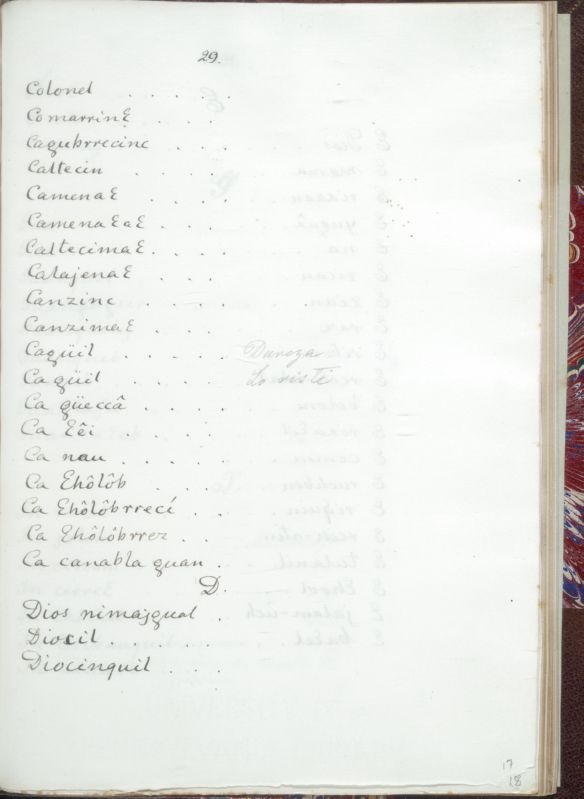 29.
Colonel . . . . .
ComarrinƐ . . .
Cagubrrecinc . . .
Caltecin . . . .
CamenaƐ . . . .
CamenaƐaƐ . . . .
CaltecimaƐ . . . .
CalajenaƐ . . . .
Canzinc . . . .
CanzimaƐ . . . .
Cagüil . . . . Dureza
Cagüil . . . . Lo viste
Ca güeccâ . . . .
Ca Ɛêi . . . .
Ca nau . . . . .
Ca Ɛhôlôb . . .
Ca Ɛhôlôbrrecí . .
Ca Ɛhôlôbrrez . .
Ca canabla quan .
D.
Dios nimajqual .
Diocil . . . .
Diocinquil . . .
17
18